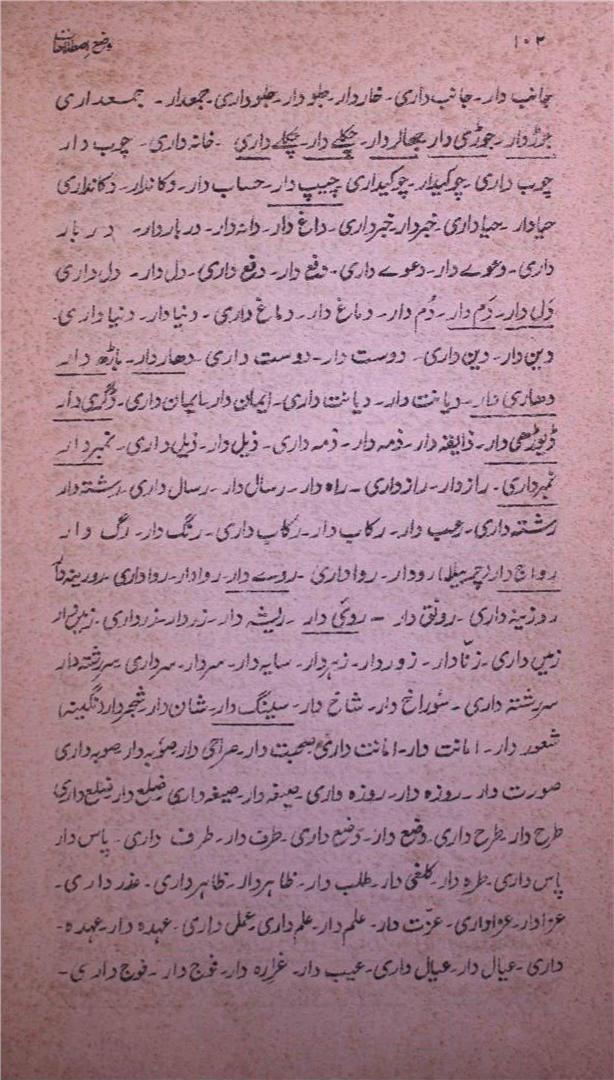 ۱۰۲
وضع اصطلاحات
جانب دار۔ جانب داری۔ خاردار۔ جلو دار۔ جلوداری۔ جمعدار۔ جمعداری
جوڑدار۔ جوڑی دار۔ جھالردار۔ چکلے دار۔ چکلے داری۔ خانہ داری۔ چوب دار
چوب داری۔ چوکیدار۔ چوکیداری۔ چیپ دار۔ حساب دار۔ دکاندار۔ دکانداری
حیادار۔ حیاداری۔ خبردار۔ خبرداری۔ داغ دار۔ دانہ دار۔ درباردار۔ دربار
داری۔ دعوے دار۔ دعوے داری۔ دفع دار۔ دفع داری۔ دل دار۔ دل داری
دَل دار۔ دَم دار۔ دُم دار۔ دماغ دار۔ دماغ داری۔ دنیا دار۔ دنیا داری۔
دین دار۔ دین داری۔ دوست دار۔ دوست داری۔ دھاردار۔ باڑھ دار
دھاری دار۔ دیانت دار۔ دیانت داری۔ ایمان دار۔ ایمان داری۔ ڈگری دار
ڈیوڑھی دار۔ ذایقہ دار۔ ذمہ دار۔ ذمہ داری۔ ذیل دار۔ ذیل داری۔ نمبردار
نمبرداری۔ رازدار۔ رازداری۔ راہ دار۔ رسال دار۔ رسال داری۔ رشتہ دار
رشتہ داری۔ رعب دار۔ رکاب دار۔ رکاب داری۔ رنگ دار۔ رگ دار
رواج دار (چربیلا) رودار۔ رواداری۔ روے دار۔ روادار۔ رواداری۔ روزینہ دار
روزینہ داری۔ رونق دار۔ روئی دار۔ ریشہ دار۔ زردار۔ زرداری۔ زمین دار
زمین داری۔ زنّادار۔ زوردار۔ زہردار۔ سایہ دار۔ سردار۔ سرداری۔ سررشتہ دار
سررشتہ داری۔ سوراخ دار۔ شاخ دار۔ سینگ دار۔ شان دار۔ شجردار (نگینہ)
شعور دار۔ امانت دار۔ امانت داری۔ صحبت دار۔ صراحی دار۔ صوبہ دار۔ صوبہ داری
صورت دار۔ روزہ دار۔ روزہ داری۔ صیغہ دار۔ صیغہ داری۔ ضلع دار۔ ضلع داری
طرح دار۔ طرح داری۔ وضع دار۔ وضع داری۔ طرف دار۔ طرف داری۔ پاس دار
پاس داری۔ طرہ دار۔ کلغی دار۔ طلب دار۔ ظاہردار۔ ظاہرداری۔ عذرداری۔
عزادار۔ عزاداری۔ عزّت دار۔ علم دار۔ علم داری۔ عمل داری۔ عہدہ دار۔ عہدہ۔
داری۔ عیال دار۔ عیال داری۔ عیب دار۔ غرارہ دار۔ فوج دار۔ فوج داری۔